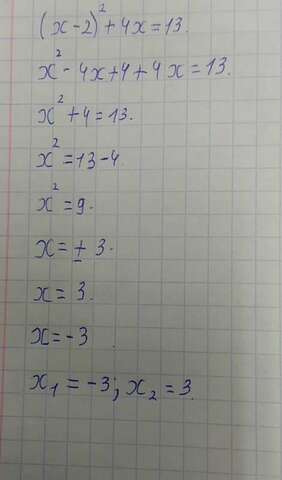 (x-2)² + 4x = 13.
x² - 4x + 4 + 4x = 13.
x² + 4 = 13.
x² = 13 - 4.
x² = 9.
x = ± 3.
x = 3.
x = -3.
x₁ = -3; x₂ = 3.